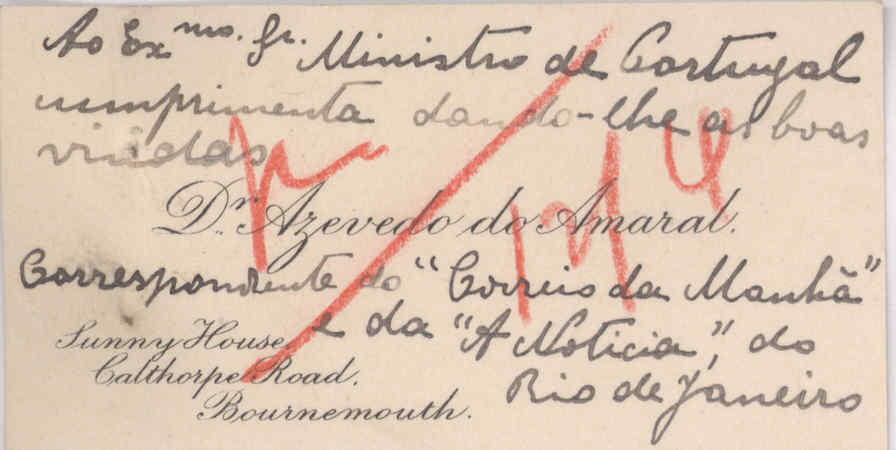 Ao Exmo. Sr. Ministro de Portugal
cumprimenta dando-lhe as boas
vindas
Dr. Azevedo do Amaral.
Correspondente do "Correio da Manhã"
e da "A Noticia", do
Rio de Janeiro
Sunny House,
Calthorpe Road.
Bournemouth.